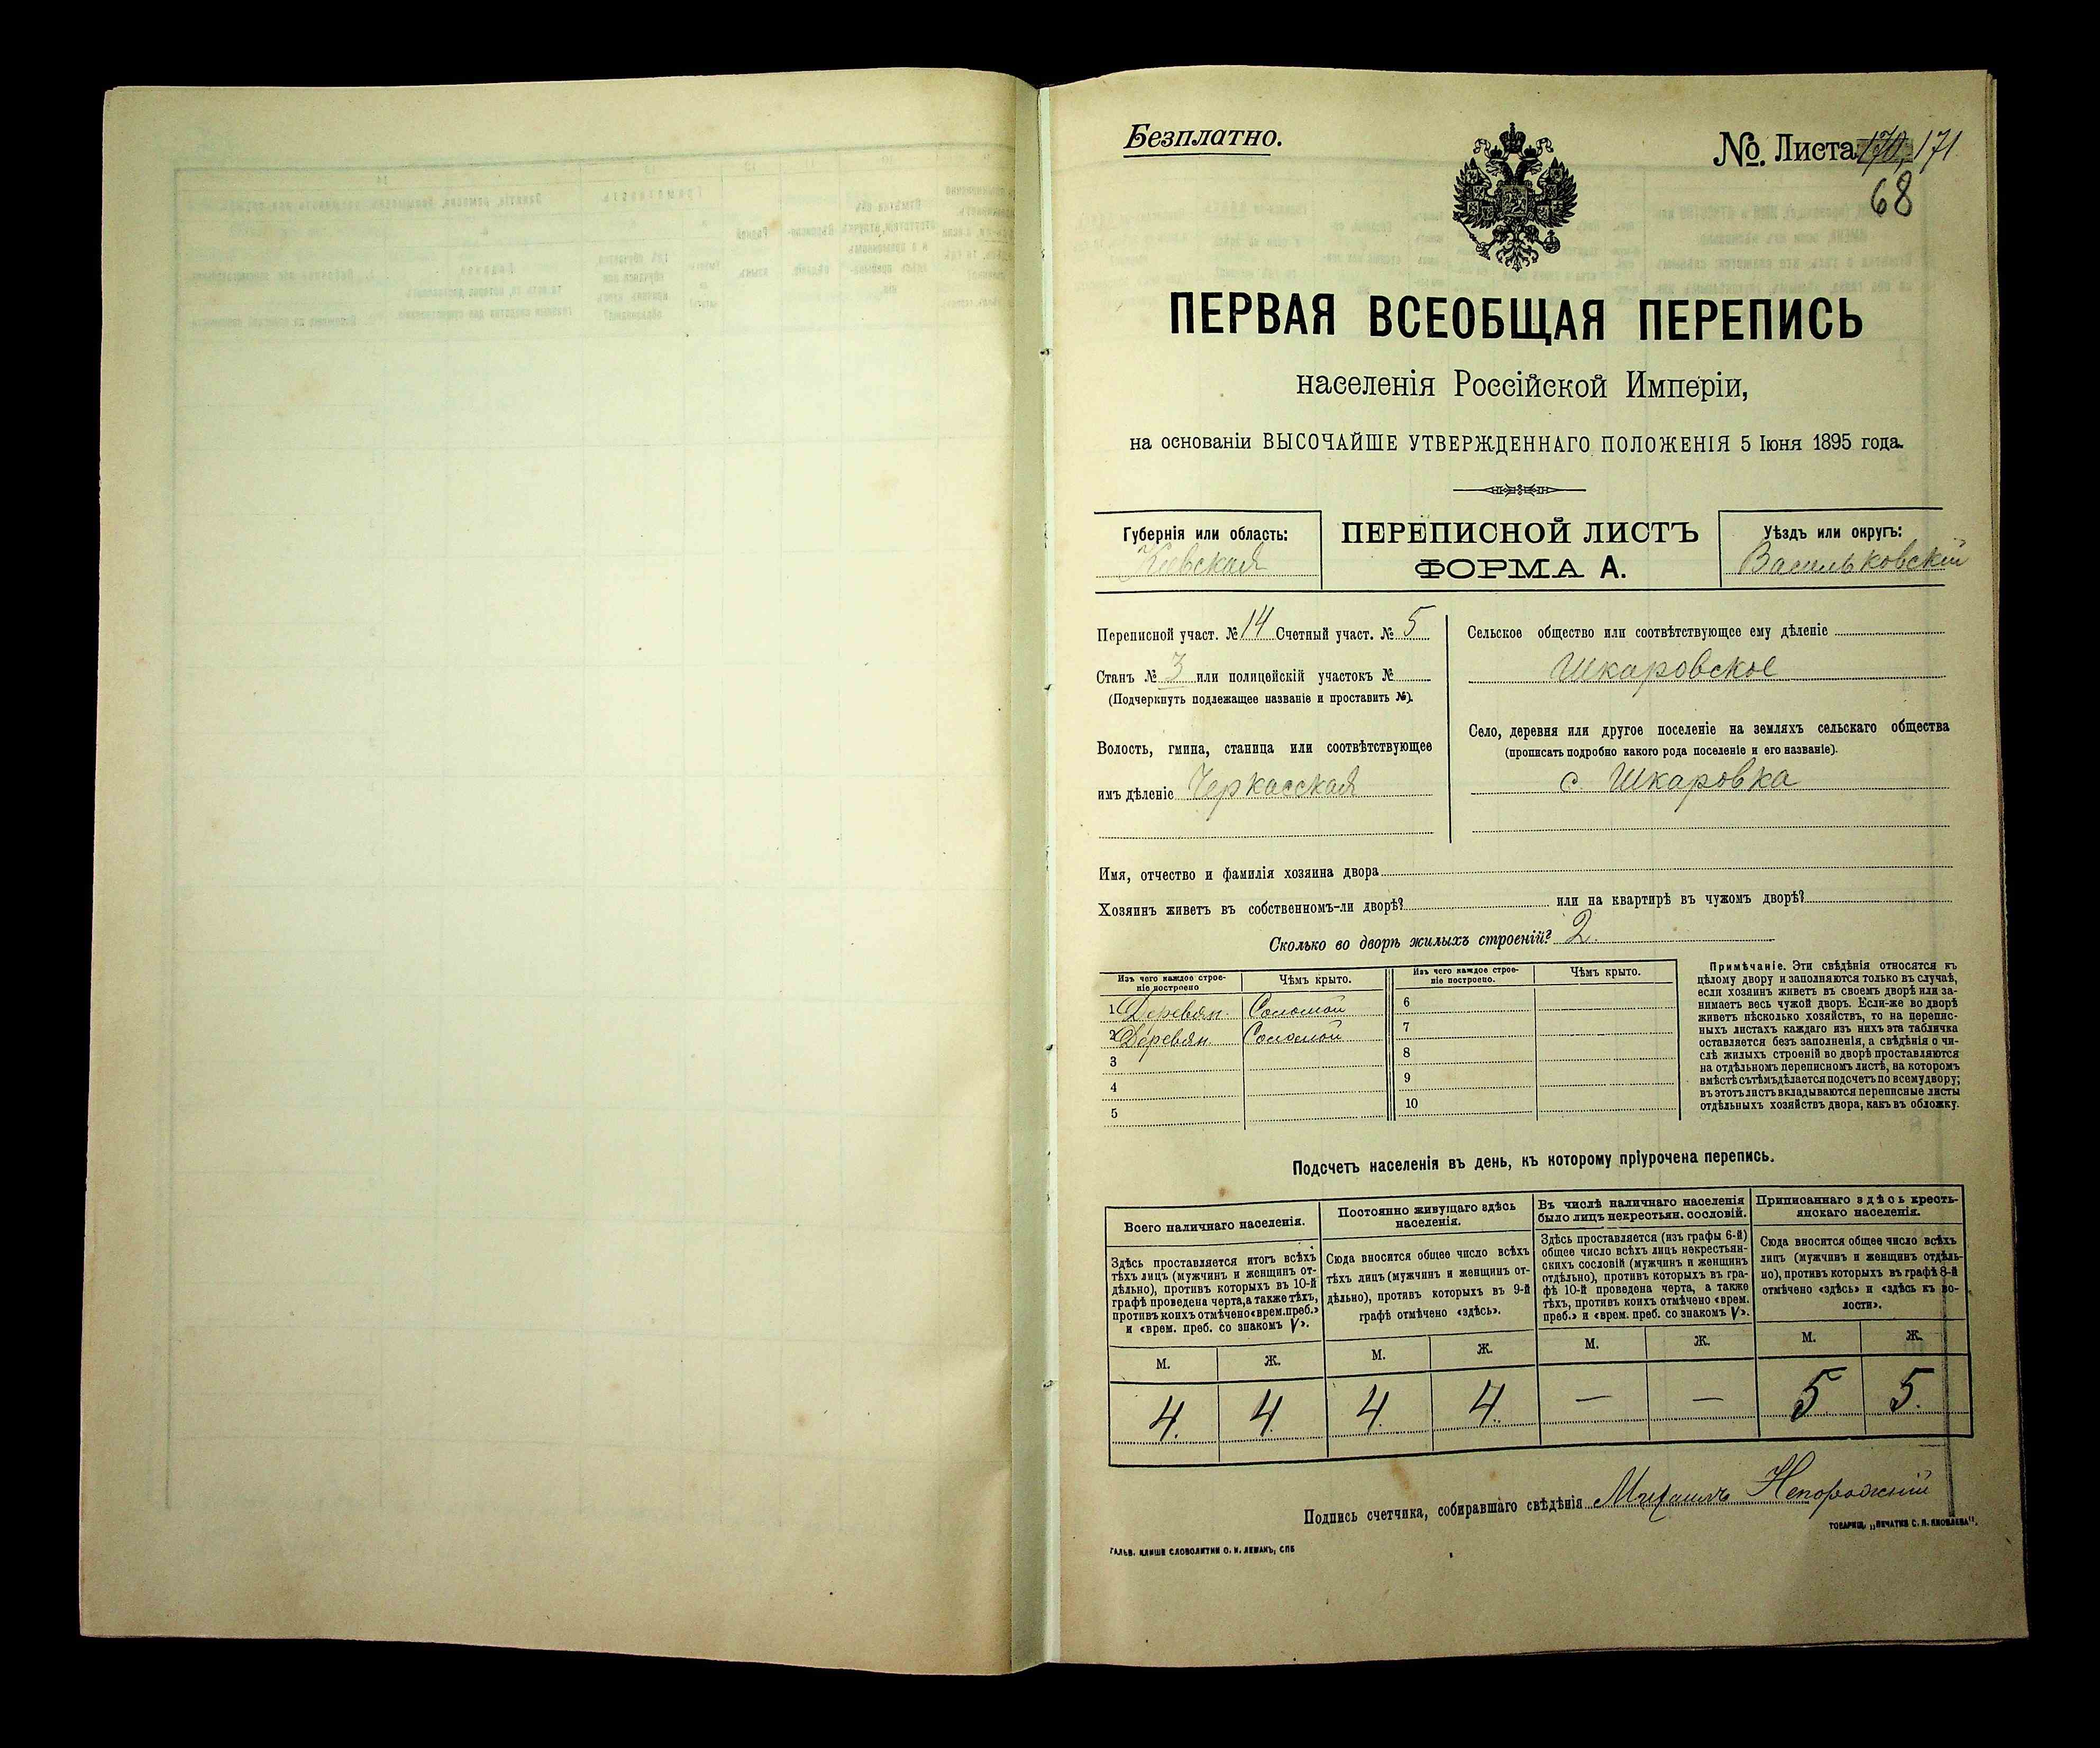 Безплатно.
№. Листа 170, 171
68
ПЕРВАЯ ВСЕОБЩАЯ ПЕРЕПИСЬ
населенія Россійской Имперіи,
на основаніи ВЫСОЧАЙШЕ УТВЕРЖДЕННАГО ПОЛОЖЕНІЯ 5 Іюня 1895 года.
Губернія или область:
Кіевская
ПЕРЕПИСНОЙ ЛИСТЪ
ФОРМА А.
Уѣздъ или округъ:
Васильковскій
Переписной участ. № 14 Счетный участ. № 5
Станъ № 3 или полицейскій участокъ №
(Подчеркнуть подлежащее названіе и проставить №).
Волость, гмина, станица или соотвѣтствующее
имъ дѣленіе Черкасская
Сельское общество или соотвѣтствующее ему дѣленіе
Шкаровское
Село, деревня или другое поселеніе на земляхъ сельскаго общества
(прописать подробно какого рода поселеніе и его названіе).
с. Шкаровка
Имя, отчество и фамилія хозяина двора
Хозяинъ живетъ въ собственномъ-ли дворѣ? или на квартирѣ въ чужомъ дворѣ?
Сколько во дворѣ жилыхъ строеній? 2.
Изъ чего каждое строе-
ніе построено
Чѣмъ крыто.
Изъ чего каждое строе-
ніе построено.
Чѣмъ крыто.
1 Деревян. Соломой 6
2 Деревян. Соломой 7
3 8
4 9
5 10
Примѣчаніе. Эти свѣдѣнія относятся къ
цѣлому двору и заполняются только въ случаѣ,
если хозяинъ живетъ въ своемъ дворѣ или за-
нимаетъ весь чужой дворъ. Если-же во дворѣ
живетъ нѣсколько хозяйствъ, то на перепис-
ныхъ листахъ каждаго изъ нихъ эта табличка
оставляется безъ заполненія, а свѣдѣнія о чи-
слѣ жилыхъ строеній во дворѣ проставляются
на отдѣльномъ переписномъ листѣ, на которомъ
вмѣстѣ съ тѣмъ дѣлается подсчетъ по всему двору;
въ этотъ листъ вкладываются переписные листы
отдѣльныхъ хозяйствъ двора, какъ въ обложку.
Подсчетъ населенія въ день, къ которому пріурочена перепись.
Всего наличнаго населенія.
Здѣсь проставляется итогъ всѣхъ
тѣхъ лицъ (мужчинъ и женщинъ от-
дѣльно), противъ которыхъ въ 10-й
графѣ проведена черта, а также тѣхъ,
противъ коихъ отмѣчено «врем. преб.»
и «врем. преб. со знакомъ V».
Постоянно живущаго здѣсь
населенія.
Сюда вносится общее число всѣхъ
тѣхъ лицъ (мужчинъ и женщинъ от-
дѣльно), противъ которыхъ въ 9-й
графѣ отмѣчено «здѣсь».
Въ числѣ наличнаго населенія
было лицъ некрестьян. сословій.
Здѣсь проставляется (изъ графы 6-й)
общее число всѣхъ лицъ некрестьян-
скихъ сословій (мужчинъ и женщинъ
отдѣльно), противъ которыхъ въ гра-
фѣ 10-й проведена черта, а также
тѣхъ, противъ коихъ отмѣчено «врем.
преб.» и «врем. преб. со знакомъ V».
Приписаннаго здѣсь кресть-
янскаго населенія.
Сюда вносится общее число всѣхъ
лицъ (мужчинъ и женщинъ отдѣль-
но), противъ которыхъ въ графѣ 8-й
отмѣчено «здѣсь» и «здѣсь къ во-
лости».
М. Ж. М. Ж. М. Ж. М. Ж.
4. 4. 4. 4. — — 5 5.
Подпись счетчика, собиравшаго свѣдѣнія Михаилъ
ТОВАРИЩ. „ПЕЧАТНЯ С. П. ЯКОВЛЕВА".
ГАЛЬВ. КЛИШЕ СЛОВОЛИТНИ О. И. ЛЕМАНЪ, СПБ